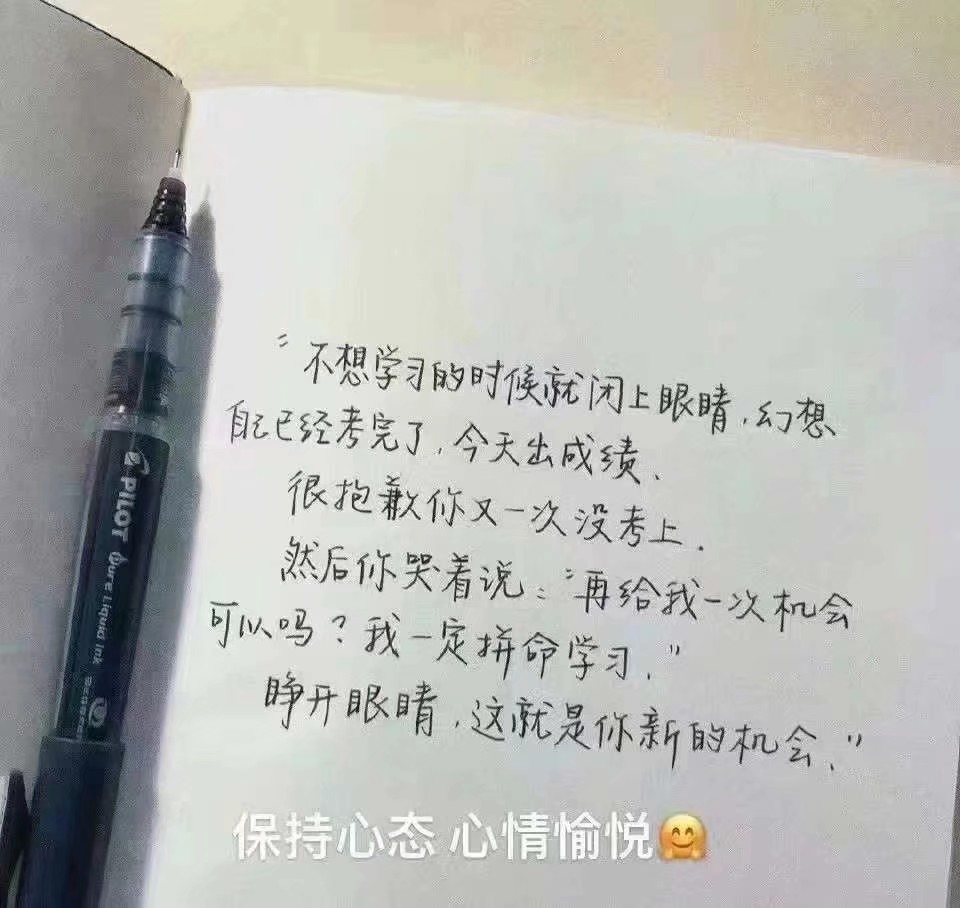 “不想学习的时候就闭上眼睛，幻想
自己已经考完了，今天出成绩．
很抱歉你又一次没考上．
然后你哭着说：“再给我一次机会
可以吗？我一定拼命学习．”
睁开眼睛，这就是你新的机会．”
保持心态 心情愉悦🤗
PILOT
Pure Liquid Ink